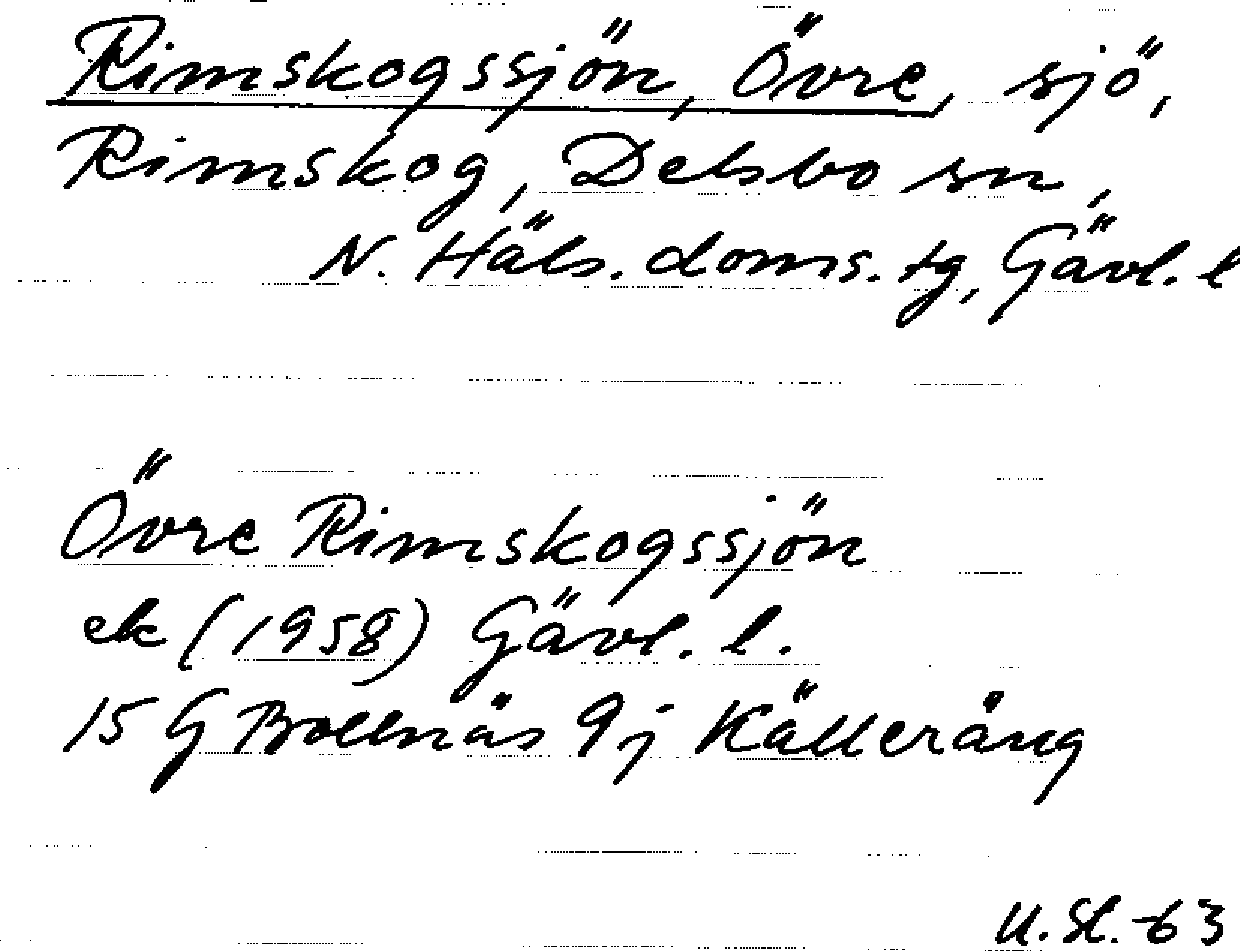 Rimskogssjön, Övre, sjö,
Rimskog, Delsbo sn,
N. Häls. doms. tg, Gävl. l
Övre Rimskogssjön
ek (1958) Gävl. l.
15 G Bollnäs 9j Källeräng
U. Sl. -63